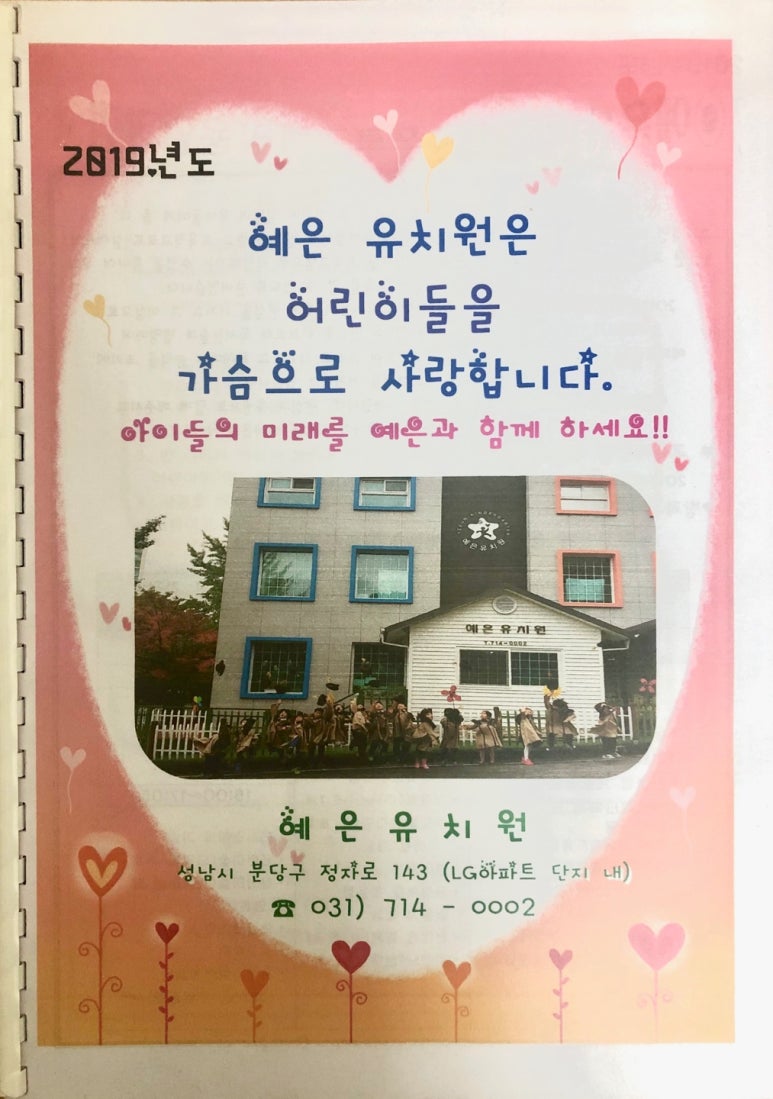 2019년도
예은 유치원은
어린이들을
가슴으로 사랑합니다.
아이들의 미래를 예은과 함께 하세요!!
예은유치원
예은유치원
T.714-0002
예은유치원
성남시 분당구 정자로 143 (LG아파트 단지 내)
☎ 031) 714 - 0002